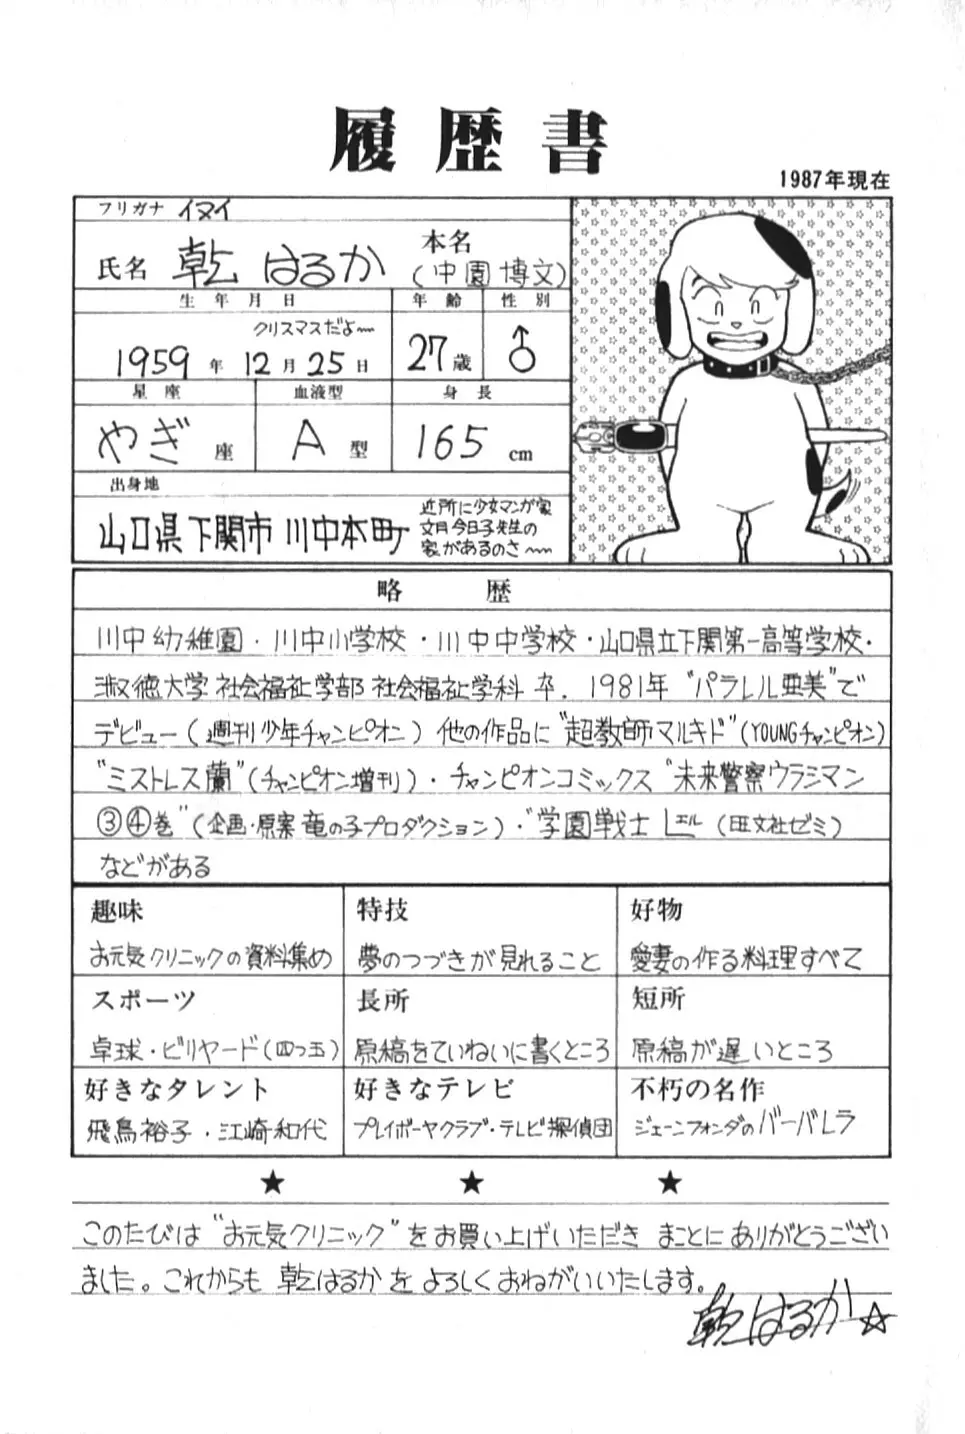 履歴書
1987年現在
フリガナ イヌイ
氏名 乾 はるか 本名 (中園博文)
生年月日 年齢 性別
クリスマスだよ〜
1959年 12月 25日 27歳 ♂
星座 血液型 身長
やぎ座 A型 165cm
出身地
山口県下関市 川中本町
近所に少女マンガ家
文月今日子先生の
家があるのさ〜
略歴
川中幼稚園・川中小学校・川中中学校・山口県立下関第一高等学校・
淑徳大学 社会福祉学部 社会福祉学科 卒. 1981年 "パラレル亜美"で
デビュー(週刊少年チャンピオン) 他の作品に"超教師マルキド"(YOUNGチャンピオン)
"ミストレス蘭"(チャンピオン増刊)・チャンピオンコミックス"未来警察ウラシマン
③④巻"(企画・原案 竜の子プロダクション)・"学園戦士 L エル (旺文社ゼミ)
などがある
趣味 特技 好物
お元気クリニックの資料集め 夢のつづきが見れること 愛妻の作る料理すべて
スポーツ 長所 短所
卓球・ビリヤード(四つ玉) 原稿をていねいに書くところ 原稿が遅いところ
好きなタレント 好きなテレビ 不朽の名作
飛鳥裕子・江崎和代 プレイボーヤクラブ・テレビ探偵団 ジェーンフォンダのバーバレラ
★ ★ ★
このたびは"お元気クリニック"をお買い上げいただき まことにありがとうござい
ました。これからも 乾はるか をよろしくおねがいいたします。
乾はるか☆